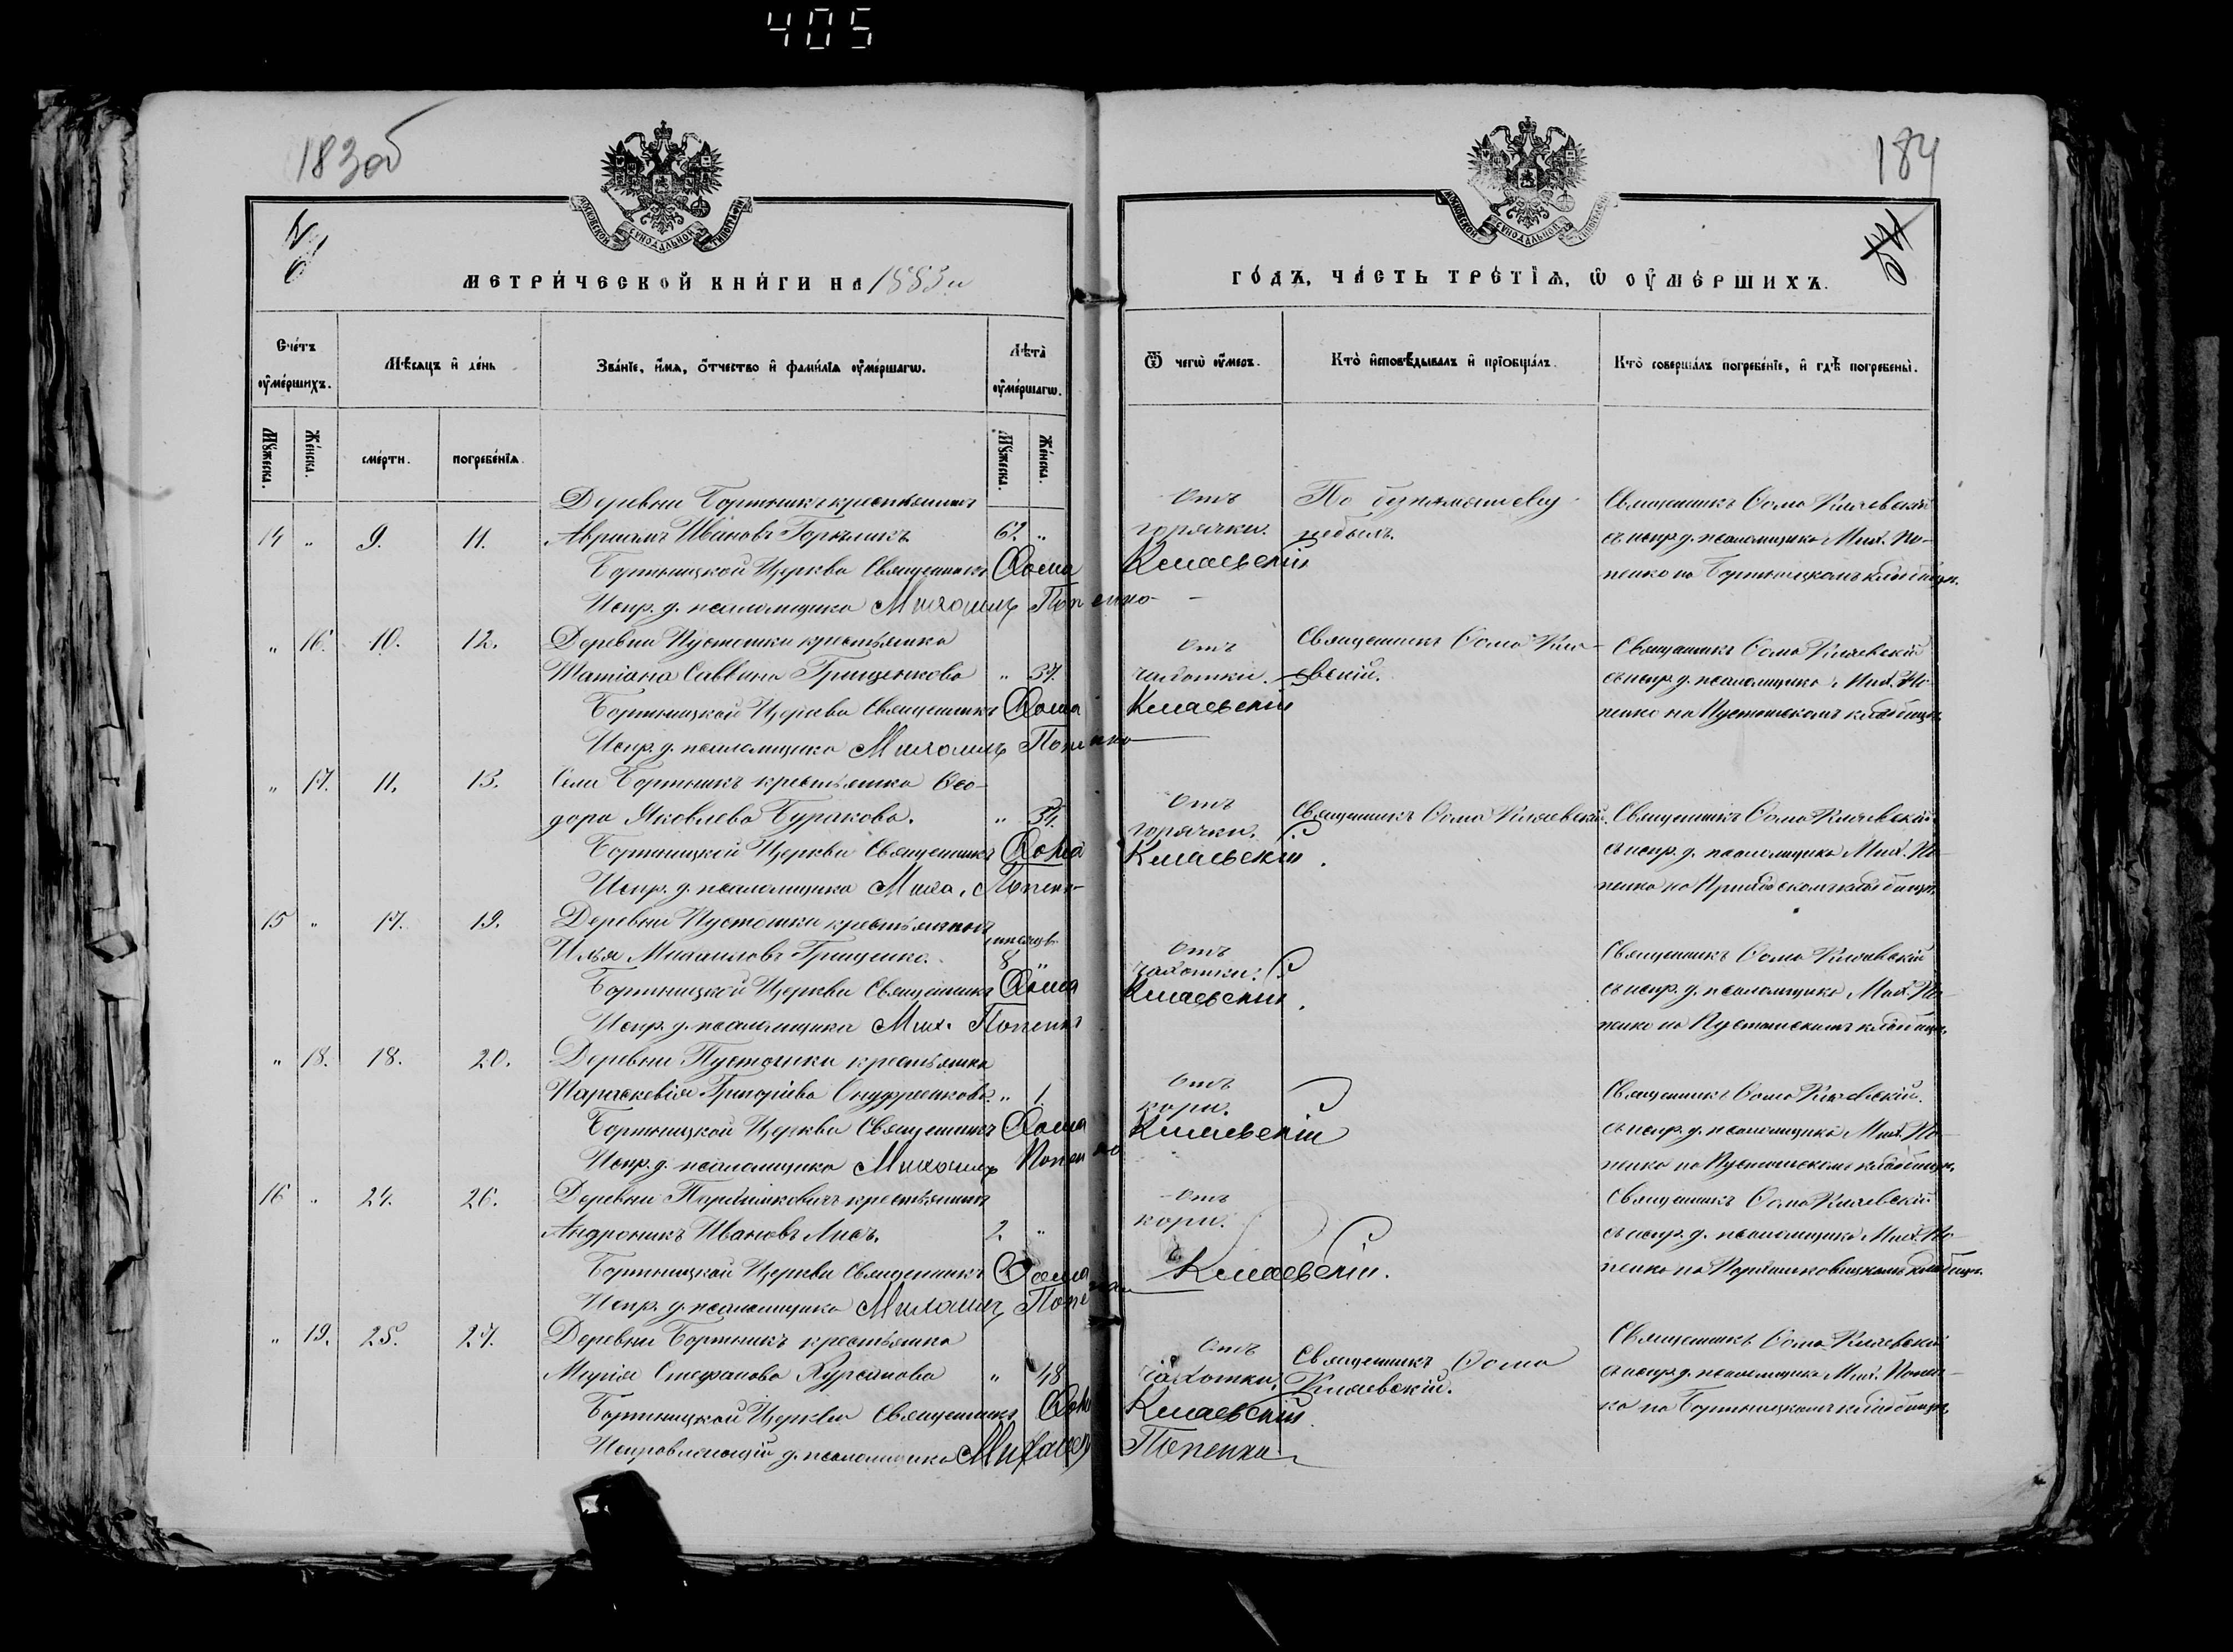 405
183 об
184
МОСКОВСКОЙ СУНОДАЛЬНОЙ ТИПОГРАФІИ
МОСКОВСКОЙ СУНОДАЛЬНОЙ ТИПОГРАФІИ
МЕТРИ́ЧЕСКОЙ КНИ́ГИ НА 1883 й
ГО́ДЪ, ЧА́СТЬ ТРЕ́ТІѦ, Ѡ ОУ҆МЕ́РШИХЪ.
Сче́тъ оу҆ме́ршихъ.
Мѣ́сѧцъ и҆ де́нь
Зва́нїе, и҆́мѧ, ѻ҆́тчество и҆ фами́лїѧ оу҆ме́ршагѡ.
Лѣ́та оу҆ме́ршагѡ.
Ѿ чегѡ̀ оу҆́меръ.
Кто̀ и҆сповѣ́дывалъ и҆ прїѡбща́лъ.
Кто̀ соверша́лъ погребе́нїе, и҆ гдѣ̀ погребены̀.
Мꙋ́жеска.
Же́нска.
сме́рти.
погребе́нїѧ.
Мꙋ́жеска.
Же́нска.
Деревни Бортникъ крестьянинъ
14 " 9. 11. Авраамъ Ивановъ 62. "
Бортницкой Церкви Священникъ Ѳома Кмаевскій
Испр. д. псаломщика Михаилъ Попенко
Отъ
горячки.
По
небылъ.
Священникъ Ѳома Кмаевскій
съ испр. д. псаломщика Мих. По-
пенко на Бортницкомъ кладбищѣ.
" 16. 10. 12. Деревни Пустошки крестьянка
Татіана Саввина Грищенкова " 37.
Бортницкой Церкви Священникъ Ѳома Кмаевскій
Испр. д. псаломщика Михаилъ Попенко
Отъ
чахотки.
Священникъ Ѳома Кма-
евскій.
Священникъ Ѳома Кмаевскій
съ испр. д. псаломщика Мих. По-
пенко на Пустошскомъ кладбищѣ
" 17. 11. 13. Села Бортникъ крестьянка Ѳео-
дора Яковлева Буракова. " 34.
Бортницкой Церкви Священникъ Ѳома Кмаевскій.
Испр. д. псаломщика Миха. Попенко
Отъ
горячки.
Священникъ Ѳома Кмаевскій.
Священникъ Ѳома Кмаевскій
съ испр. д. псаломщика Мих. По-
пенко на Приходскомъ кладбищѣ.
15 " 17. 19. Деревни Пустошки крестьянинъ
Илья Михаиловъ Грищенко. мѣсяцъ. 8 "
Бортницкой Церкви Священникъ Ѳома Кмаевскій.
Испр. д. псаломщика Мих. Попенко
Отъ
чахотки.
Священникъ Ѳома Кмаевскій
съ испр. д. псаломщика Мих. По-
пенко на Пустошскомъ кладбищѣ.
" 18. 18. 20. Деревни Пустошки крестьянка
Параскевія Григоріева Онуфреенкова. " 1.
Бортницкой Церкви Священникъ Ѳома Кмаевскій
Испр. д. псаломщика Михаилъ Попенко
Отъ
кори.
Священникъ Ѳома Кмаевскій.
съ испр. д. псаломщика Мих. По-
пенко на Пустошскомъ кладбищѣ.
16 " 24. 26. Деревни крестьянинъ
Андроникъ Ивановъ Лисъ. 2. "
Бортницкой Церкви Священникъ Ѳома Кмаевскій.
Испр. д. псаломщика Михаилъ Попенко
Отъ
кори.
Священникъ Ѳома Кмаевскій
съ испр. д. псаломщика Мих. По-
пенко на кладбищѣ.
" 19. 25. 27. Деревни Бортникъ крестьянка
Марія Стефанова Хурсанова " 48
Бортницкой Церкви Священникъ Ѳома Кмаевскій
Исправляющій д. псаломщика Михаилъ Попенко
Отъ
чахотки.
Священникъ Ѳома
Кмаевскій.
Священникъ Ѳома Кмаевскій
съ испр. д. псаломщика Мих. Попен-
ко на Бортницкомъ кладбищѣ